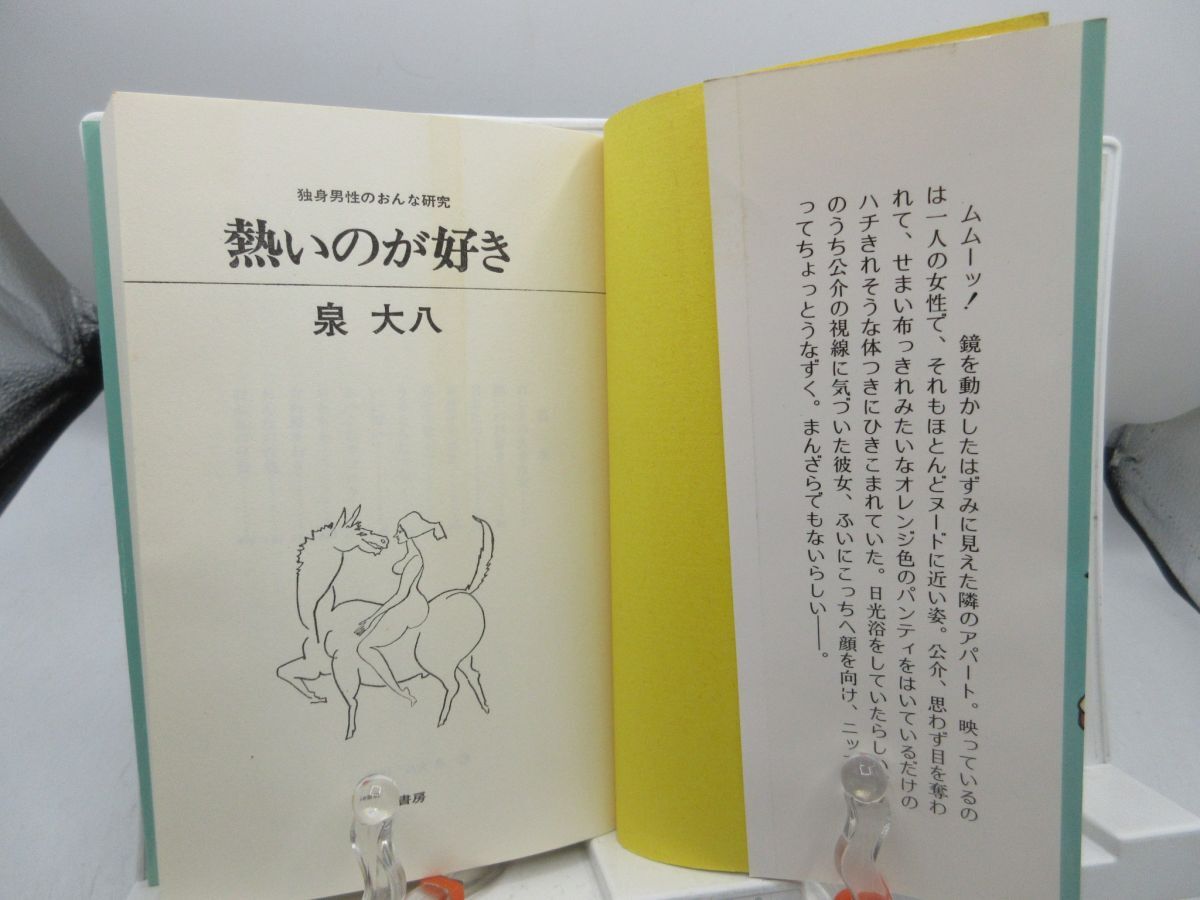 独身男性のおんな研究
熱いのが好き
泉 大八
書房
ムムーッ! 鏡を動かしたはずみに見えた隣のアパート。映っているの
は一人の女性で、それもほとんどヌードに近い姿。公介、思わず目を奪わ
れて、せまい布っきれみたいなオレンジ色のパンティをはいているだけの
ハチきれそうな体つきにひきこまれていた。日光浴をしていたらしい
のうち公介の視線に気づいた彼女、ふいにこっちへ顔を向け、ニッ
ってちょっとうなずく。まんざらでもないらしい——。